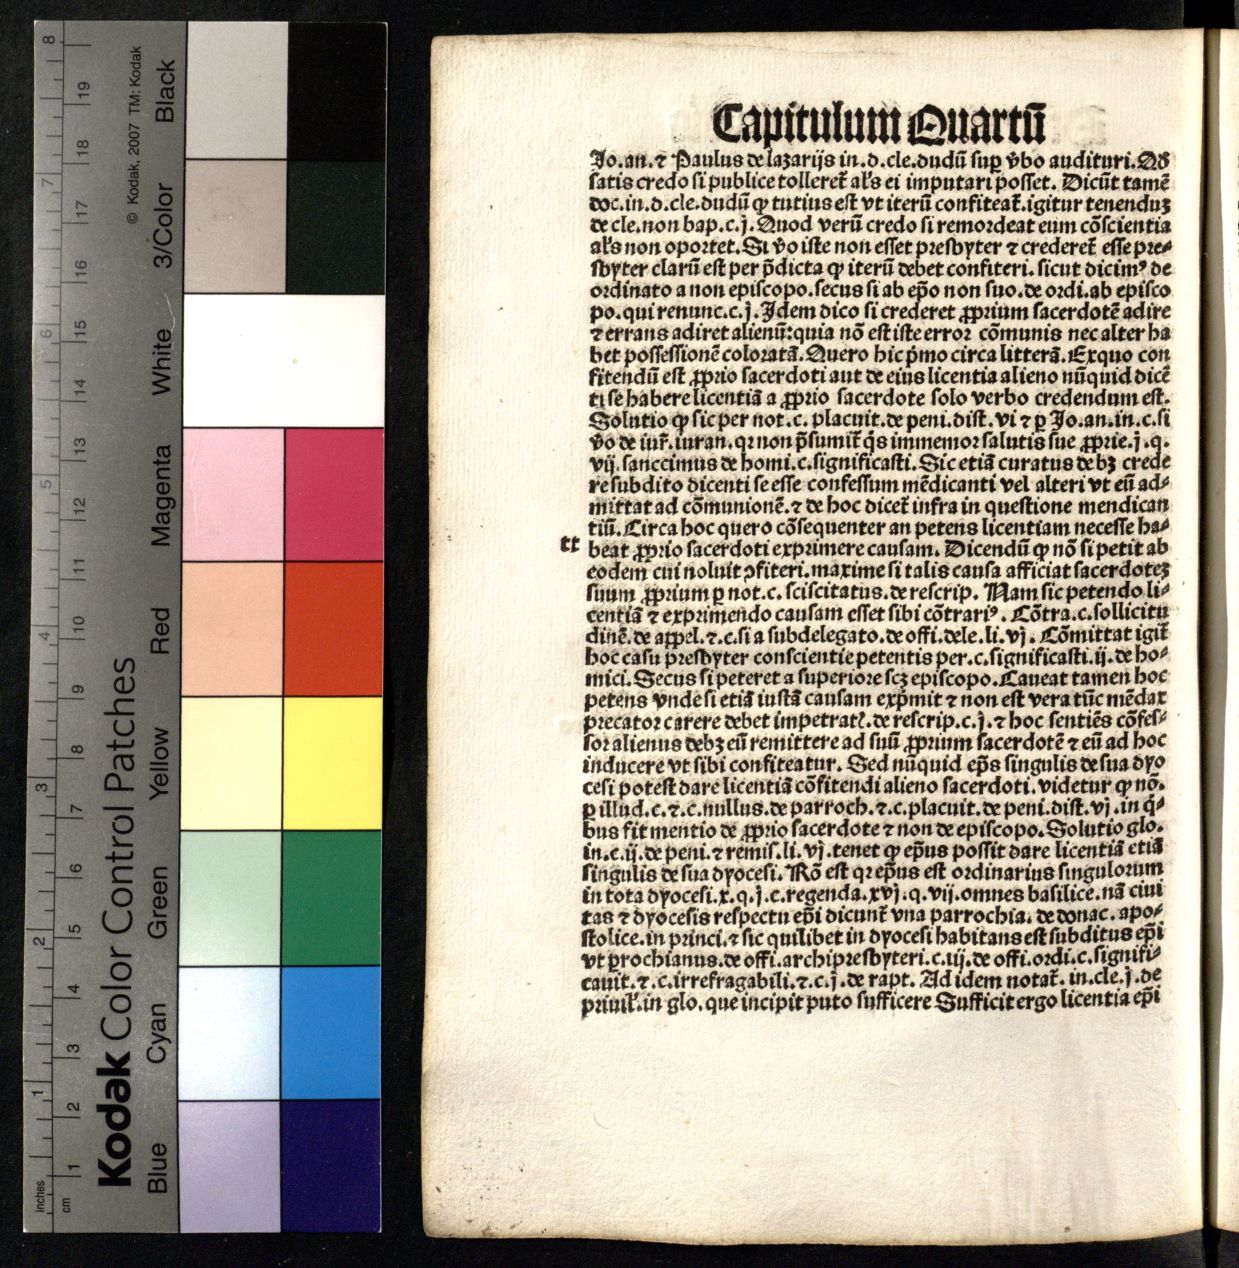 Capitulum Quartū
Jo.an.⁊ Paulus de lazarijs in.d.cle.dudū suꝑ v̄bo audituri.Qđ
satis credo si publice tolleret̄ al's ei imputari posset. Dicūt tamē
doc.in.d.cle.dudū ꝙ tutius est vt iterū confiteat̄.igitur tenenduꝫ
de cle.non bap.c.j.Quod verū credo si remordeat eum cōscientia
al's non oportet.Si v̄o iste non esset presbyter ⁊ crederet̄ esse pre-
sbyter clarū est per p̄dicta ꝙ iterū debet confiteri.sicut dicimꝰ de
ordinato a non episcopo.secus si ab ep̄o non suo.de ordi.ab episco
po.qui renunc.c.j.Idem dico si crederet ꝓprium sacerdotē adire
⁊ errans adiret alienū:quia nō est iste error cōmunis nec alter ha
bet possessionē coloratā.Quero hic p̄mo circa litterā.Exquo con
fitendū est ꝓprio sacerdoti aut de eius licentia alieno nūquid dicē
ti se habere licentiā a ꝓprio sacerdote solo verbo credendum est.
Solutio ꝙ sic per not.c. placuit.de peni.dist. vi ⁊ ꝑ Jo.an.in.c.si
v̄o de iur̄.iuran.qꝛ non p̄sumit̄ q̄s immemor salutis sue ꝓprie.j.q.
vij.sanccimus de homi.c.significasti.Sic etiā curatus debꝫ crede
re subdito dicenti se esse confessum mēdicanti vel alteri vt eū ad-
mittat ad cōmunionē.⁊ de hoc dicet̄ infra in questione mendican
tiū.Circa hoc quero cōsequenter an petens licentiam necesse ha-
tt beat ꝓprio sacerdoti exprimere causam. Dicendū ꝙ nō si petit ab
eodem cui noluit ꝯfiteri.maxime si talis causa afficiat sacerdoteꝫ
suum ꝓprium ꝑ not.c. sciscitatus.de rescrip. Nam sic petendo li-
centiā ⁊ exprimendo causam esset sibi cōtrariꝰ. Cōtra.c.sollicitu
dinē.de appel.⁊.c.si a subdelegato.de offi.dele.li.vj. Cōmittat igit̄
hoc casu presbyter conscientie petentis per.c.significasti.ij.de ho-
mici.Secus si peteret a superiore scꝫ episcopo.Caueat tamen hoc
petens vnde si etiā iustā causam exp̄mit ⁊ non est vera tūc mēdax
precator carere debet impetratꝭ.de rescrip.c.j.⁊ hoc sentiēs cōfes-
sor alienus debꝫ eū remittere ad suū ꝓprium sacerdotē ⁊ eū ad hoc
inducere vt sibi confiteatur. Sed nūquid ep̄s singulis de sua dyo
cesi potest dare licentiā cōfitendi alieno sacerdoti.videtur ꝙ nō.
ꝑ illud.c.⁊.c.nullus.de parroch.⁊.c.placuit.de peni.dist.vj.in q̄-
bus fit mentio de ꝓprio sacerdote ⁊ non de episcopo.Solutio glo.
in.c.ij.de peni.⁊ remis.li.vj.tenet ꝙ ep̄us possit dare licentiā etiā
singulis de sua dyocesi. Rō est qꝛ ep̄us est ordinarius singulorum
in tota dyocesi.x.q.j.c.regenda.xvj.q.vij.omnes basilice.nā ciui
tas ⁊ dyocesis respectu ep̄i dicunt̄ vna parrochia. de donac. apo-
stolice.in princi.⁊ sic quilibet in dyocesi habitans est subditus ep̄i
vt ꝑrochianus.de offi.archipresbyteri.c.iij.de offi.ordi.c.signifi-
cauit.⁊.c.irrefragabili.⁊.c.j.de rapt. Ad idem notat̄. in.cle.j.de
priuil'.in glo.que incipit puto sufficere Sufficit ergo licentia ep̄i
© Kodak, 2007 TM: Kodak
Kodak Color Control Patches
Blue Cyan Green Yellow Red Magenta White 3/Color Black
inches 1 2 3 4 5 6 7 8
cm 1 2 3 4 5 6 7 8 9 10 11 12 13 14 15 16 17 18 19